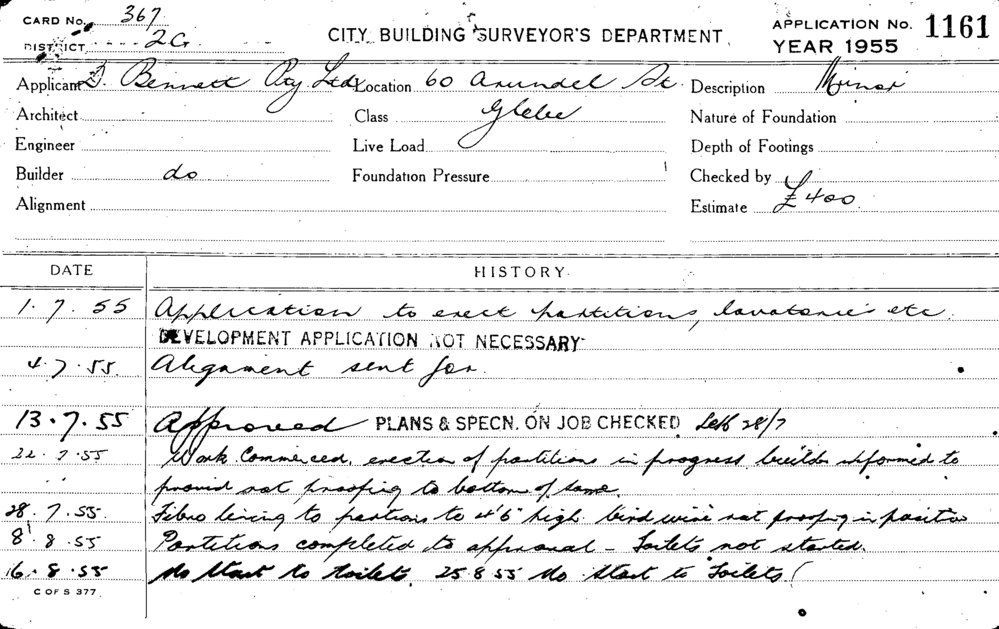 CARD No. 367
DISTRICT 2G
CITY BUILDING SURVEYOR'S DEPARTMENT
APPLICATION No. 1161
YEAR 1955
Applicant D. Bennett Pty Ltd Location 60 Arundel St. Description Minor
Architect Class Glebe Nature of Foundation
Engineer Live Load Depth of Footings
Builder do Foundation Pressure Checked by
Alignment Estimate £400
DATE HISTORY
1.7.55 Application to erect partitions, lavatories etc.
DEVELOPMENT APPLICATION NOT NECESSARY
4.7.55. Alignment sent for.
13.7.55 Approved PLANS & SPECN. ON JOB CHECKED 28/7
22.7.55 Work Commenced, erection of partitions in progress builder informed to
provid rat proofing to bottom of same.
28.7.55. Fibro lining to partions to 4'6" high. bird wire rat proofing in position
8.8.55 Partitions completed to approval - Toilets not started.
16.8.55 No Start to toilets. 25 8 55 No Start to Toilets
C OF S 377